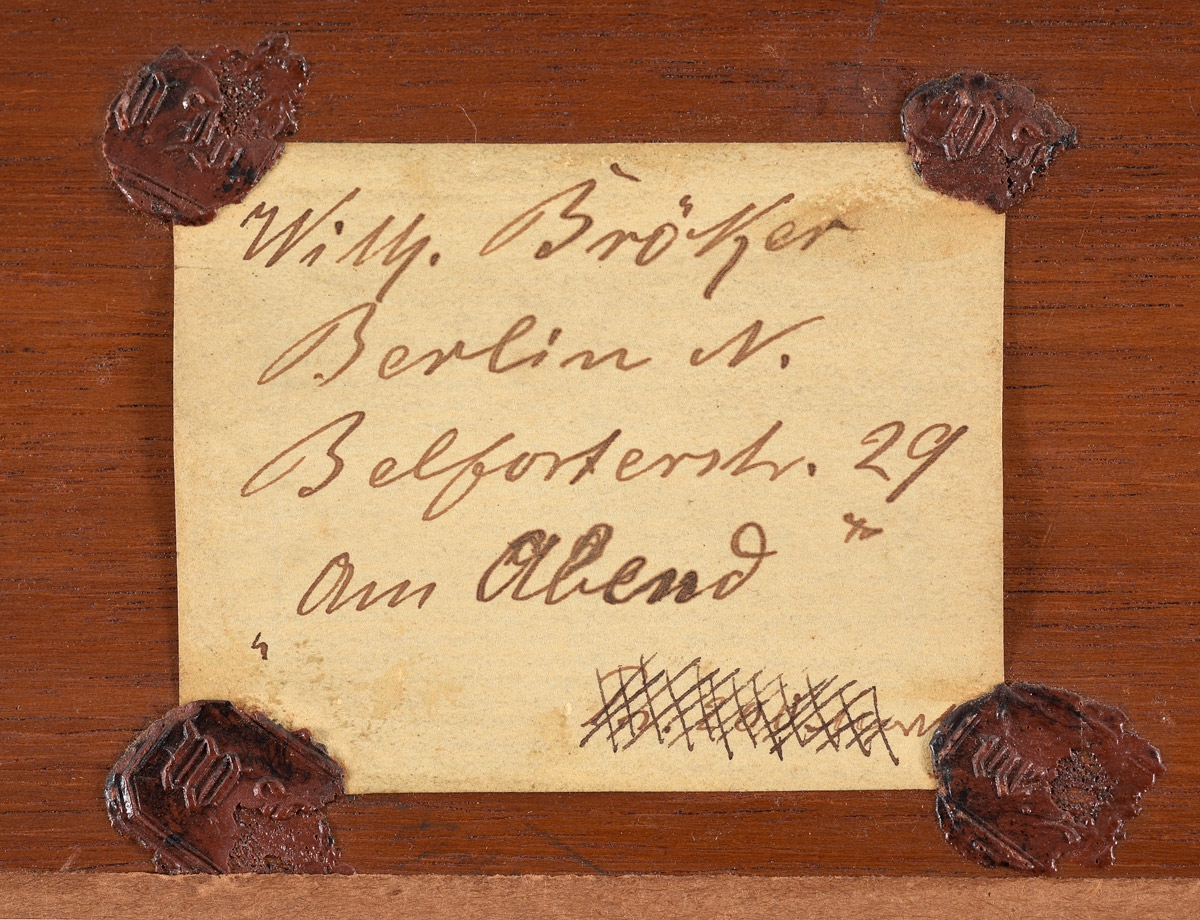 Wilh. Bröker
Berlin N.
Belforterstr. 29
„Am Abend“